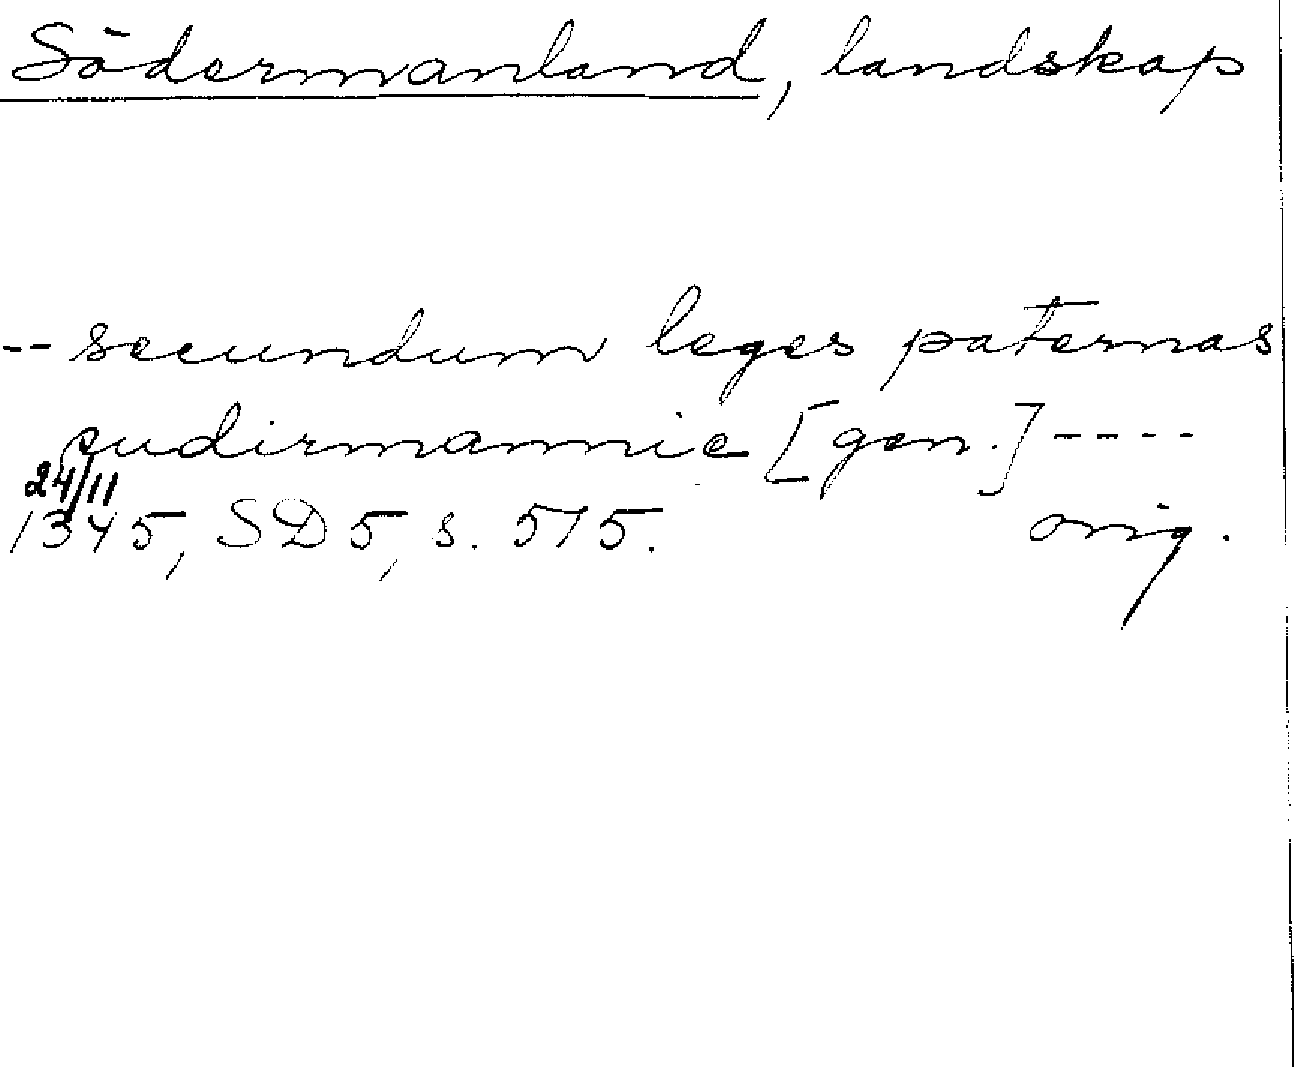 Södermanland, landskap
-- secundum leges paternas
sudirmannie [gen.] ----
24/11
1345, SD 5, s. 515. orig.